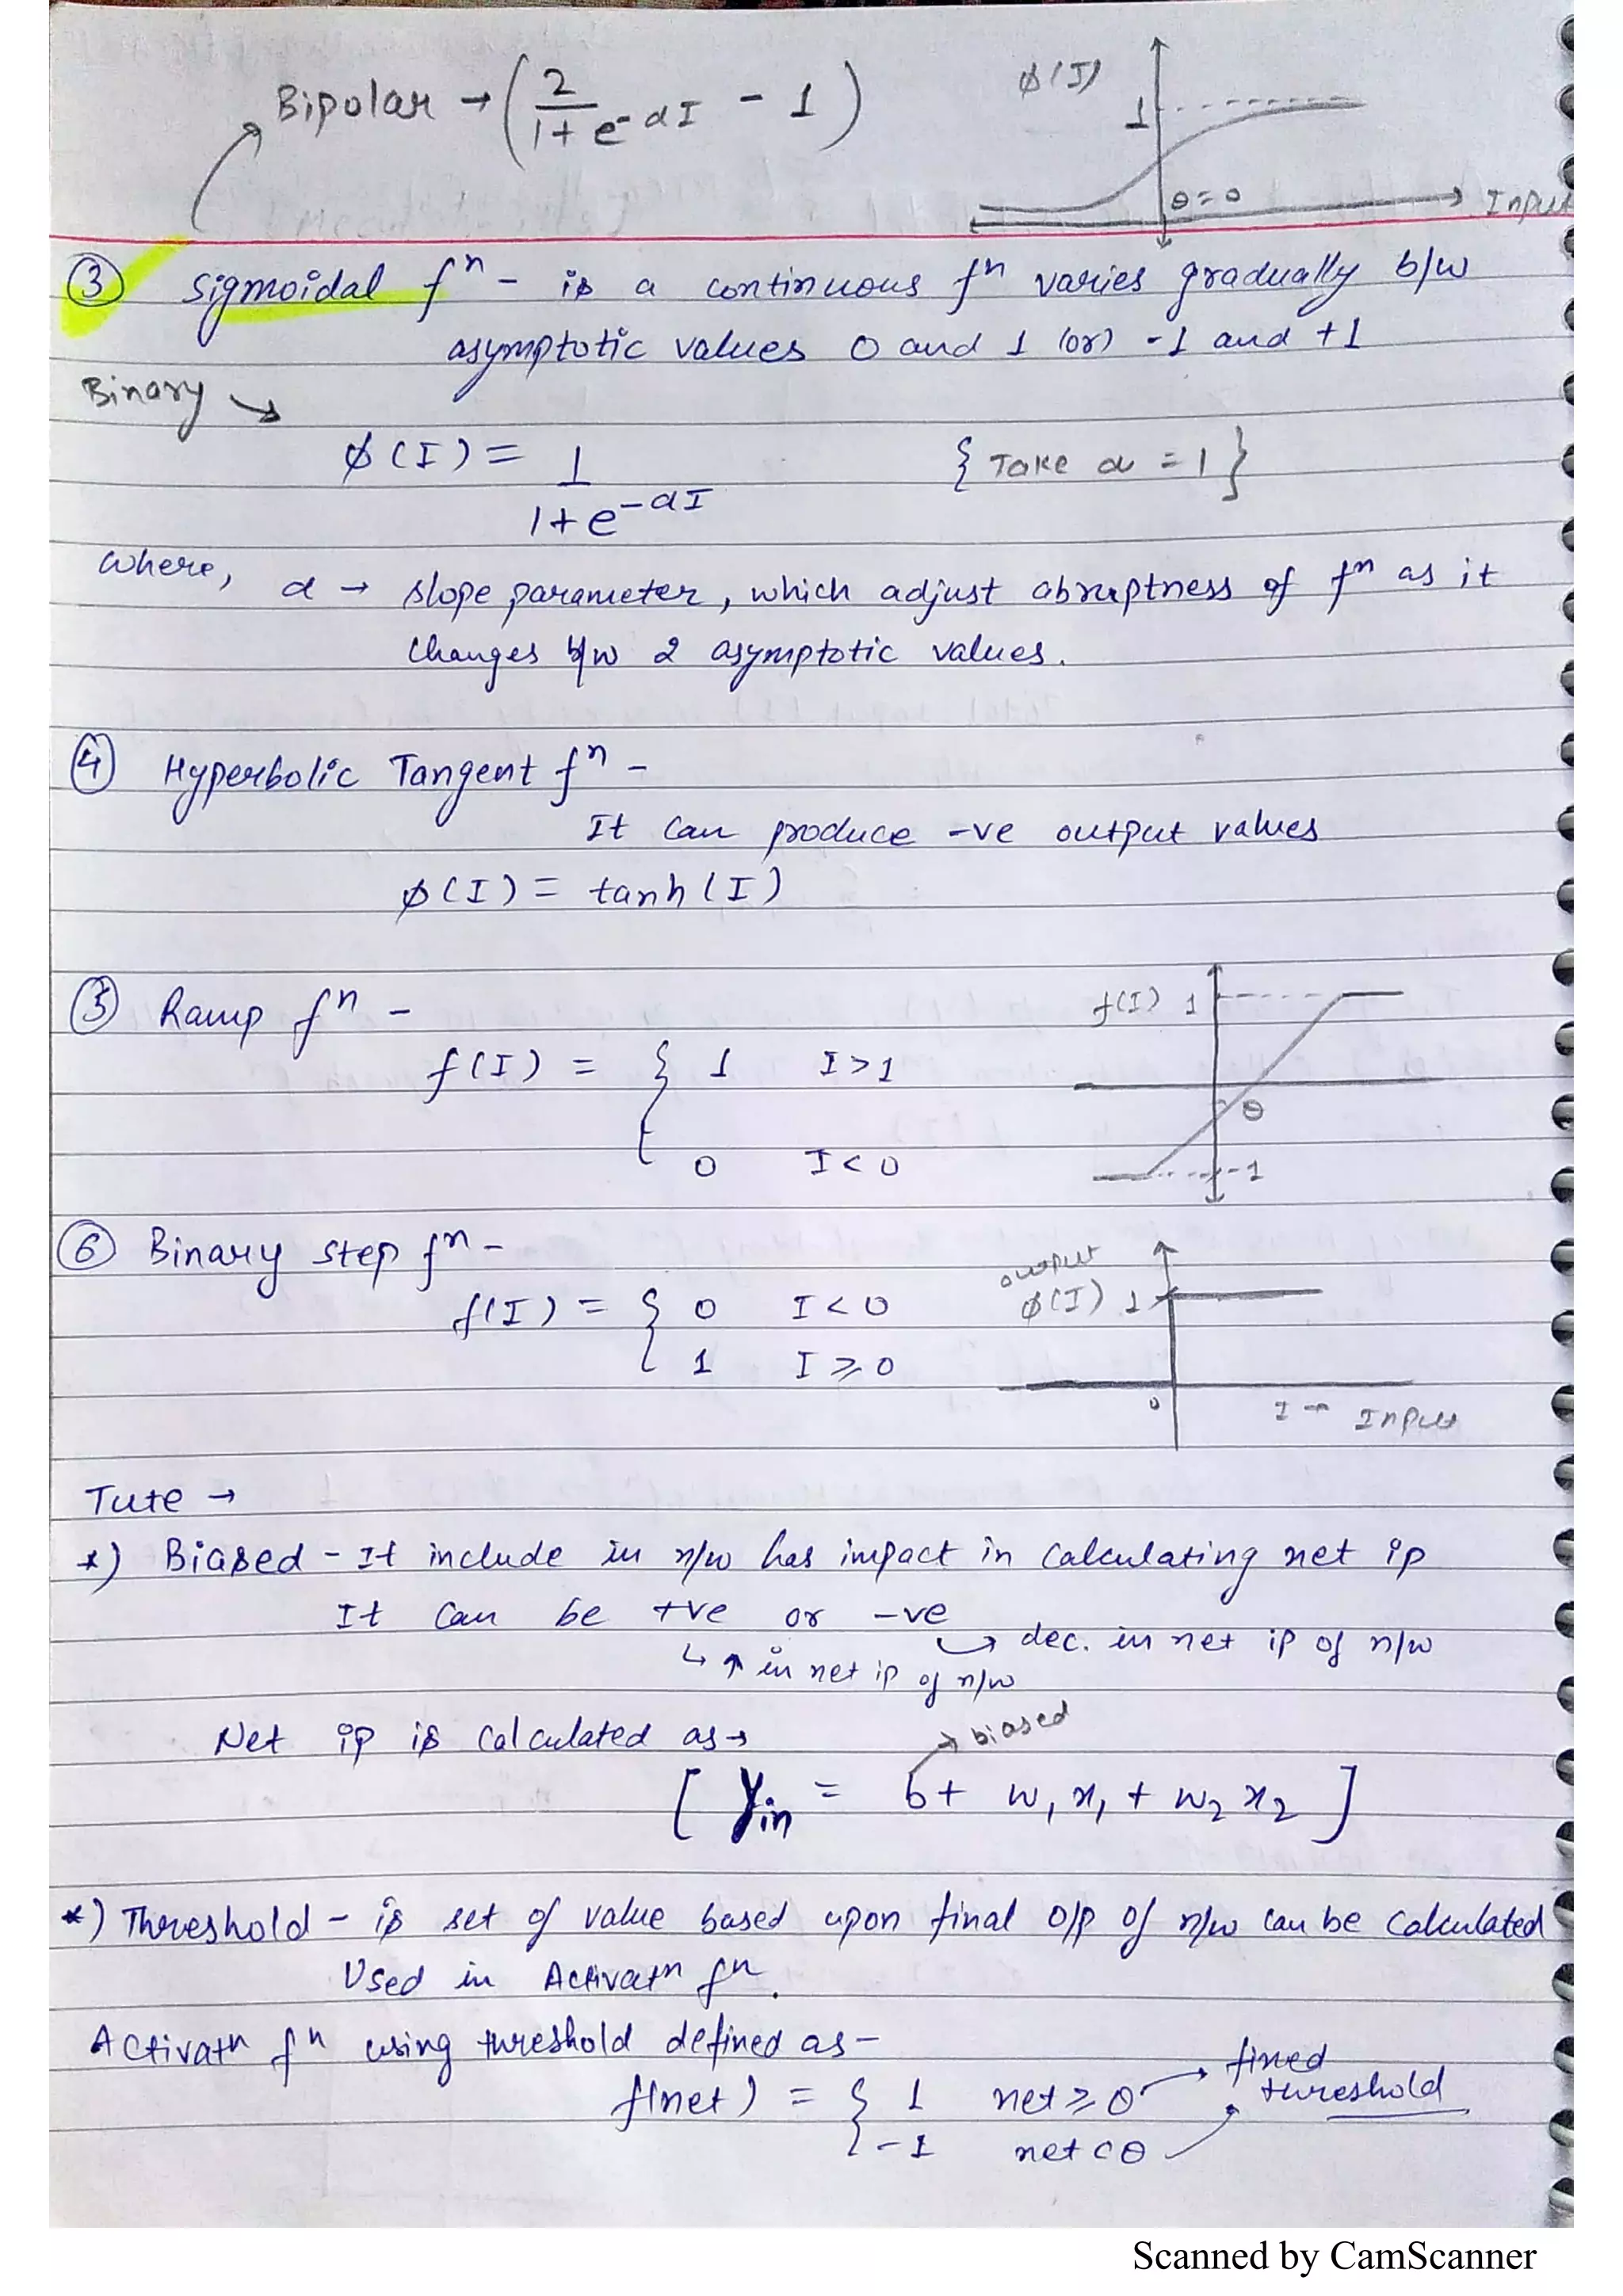 Bipolar → (2/(1+e^-αI) - 1)
φ(I)
1
θ=0
Input
③ Sigmoidal fⁿ - is a continuous fⁿ varies gradually b/w
asymptotic values 0 and 1 (or) -1 and +1
Binary ↘
φ(I) = 1/(1+e^-αI) {Take α = 1}
where, α → slope parameter, which adjust abruptness of fⁿ as it
changes b/w 2 asymptotic values.
④ Hyperbolic Tangent fⁿ -
It can produce -ve output values
φ(I) = tanh(I)
⑤ Ramp fⁿ -
f(I) = { 1 I>1
0 I<0
f(I) 1
θ
-1
⑥ Binary step fⁿ -
f(I) = { 0 I<0
1 I≥0
output
φ(I) 1
0
I → Input
Tute →
*) Biased - It include in n/w has impact in calculating net ip
It can be +ve or -ve
↳ dec. in net ip of n/w
↳ ↑ in net ip of n/w
Net ip is calculated as→
→ biased
[ Yin = b + w₁x₁ + w₂x₂ ]
*) Threshold - is set of value based upon final o/p of n/w can be calculated
Used in Activatⁿ fⁿ.
Activatⁿ fⁿ using threshold defined as -
f(net) = { 1 net ≥ θ → fined
threshold
-1 net < θ
Scanned by CamScanner